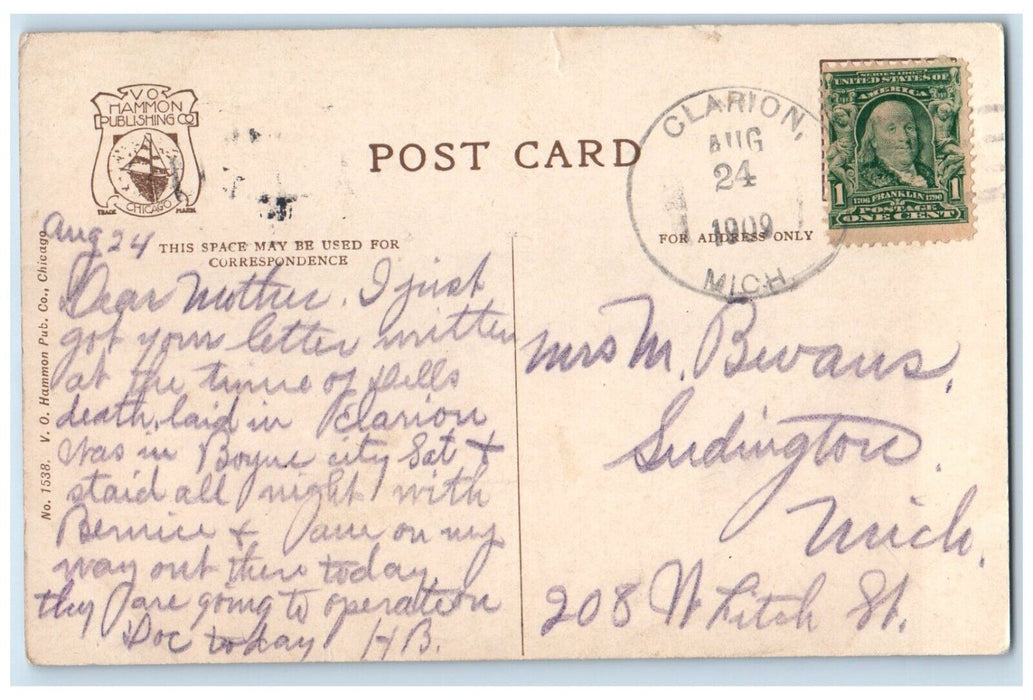 V.O.
HAMMON
PUBLISHING CO
TRADE CHICAGO MARK
POST CARD
CLARION,
AUG
24
1909
MICH.
SERIES 1902
UNITED STATES OF
AMERICA
1 1706 FRANKLIN 1790 1
POSTAGE
ONE CENT
THIS SPACE MAY BE USED FOR
CORRESPONDENCE
FOR ADDRESS ONLY
No. 1538. V. O. Hammon Pub. Co., Chicago
Aug 24
Dear Mother. I just
got your letter written
at the time of Dells
death, laid in Clarion
was in Boyne city Sat +
staid all night with
Bernice + am on my
way out there today.
they are going to operation
Doc today HB.
Mrs M. Bevans,
Ludington.
Mich.
208 N St.